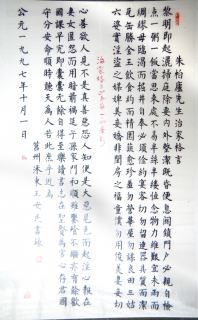 朱柏廬先生治家格言
黎明即起灑掃庭除要內外整潔既昏便息關鎖門戶必親自檢
點一粥一飯當思來處不易半絲半縷恆念物力維艱宜未雨而
綢繆毋臨渴而掘井自奉必須儉約宴客切勿留連器具質而潔
瓦缶勝金玉飲食約而精園蔬愈珍饈勿營華屋勿謀良田三姑
六婆實淫盜之媒婢美妾嬌非閨房之福童僕勿用俊美妻妾切
治家格言
心善欲人見不是真善惡恐人知便是大惡見色而起淫心報在
妻女匿怨而用暗箭禍延子孫家門和順雖饔飧不繼亦有餘歡
國課早完即囊橐無餘自得至樂讀書志在聖賢為官心存君國
守分安命順時聽天為人若此庶乎近焉
公元一九九七年十月一日